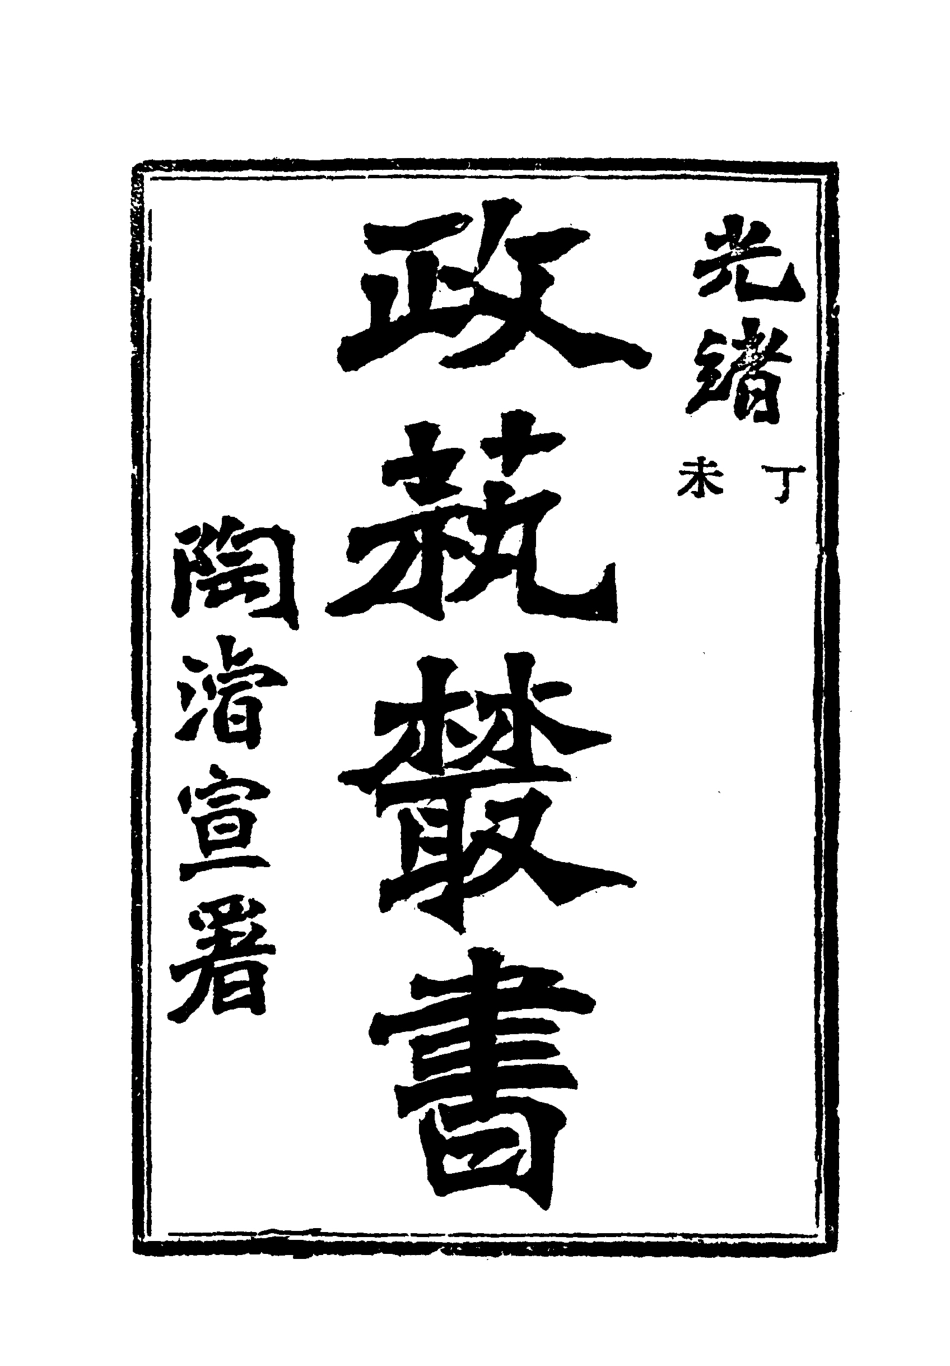 光緒丁未
政蓺藂書
陶濬宣署